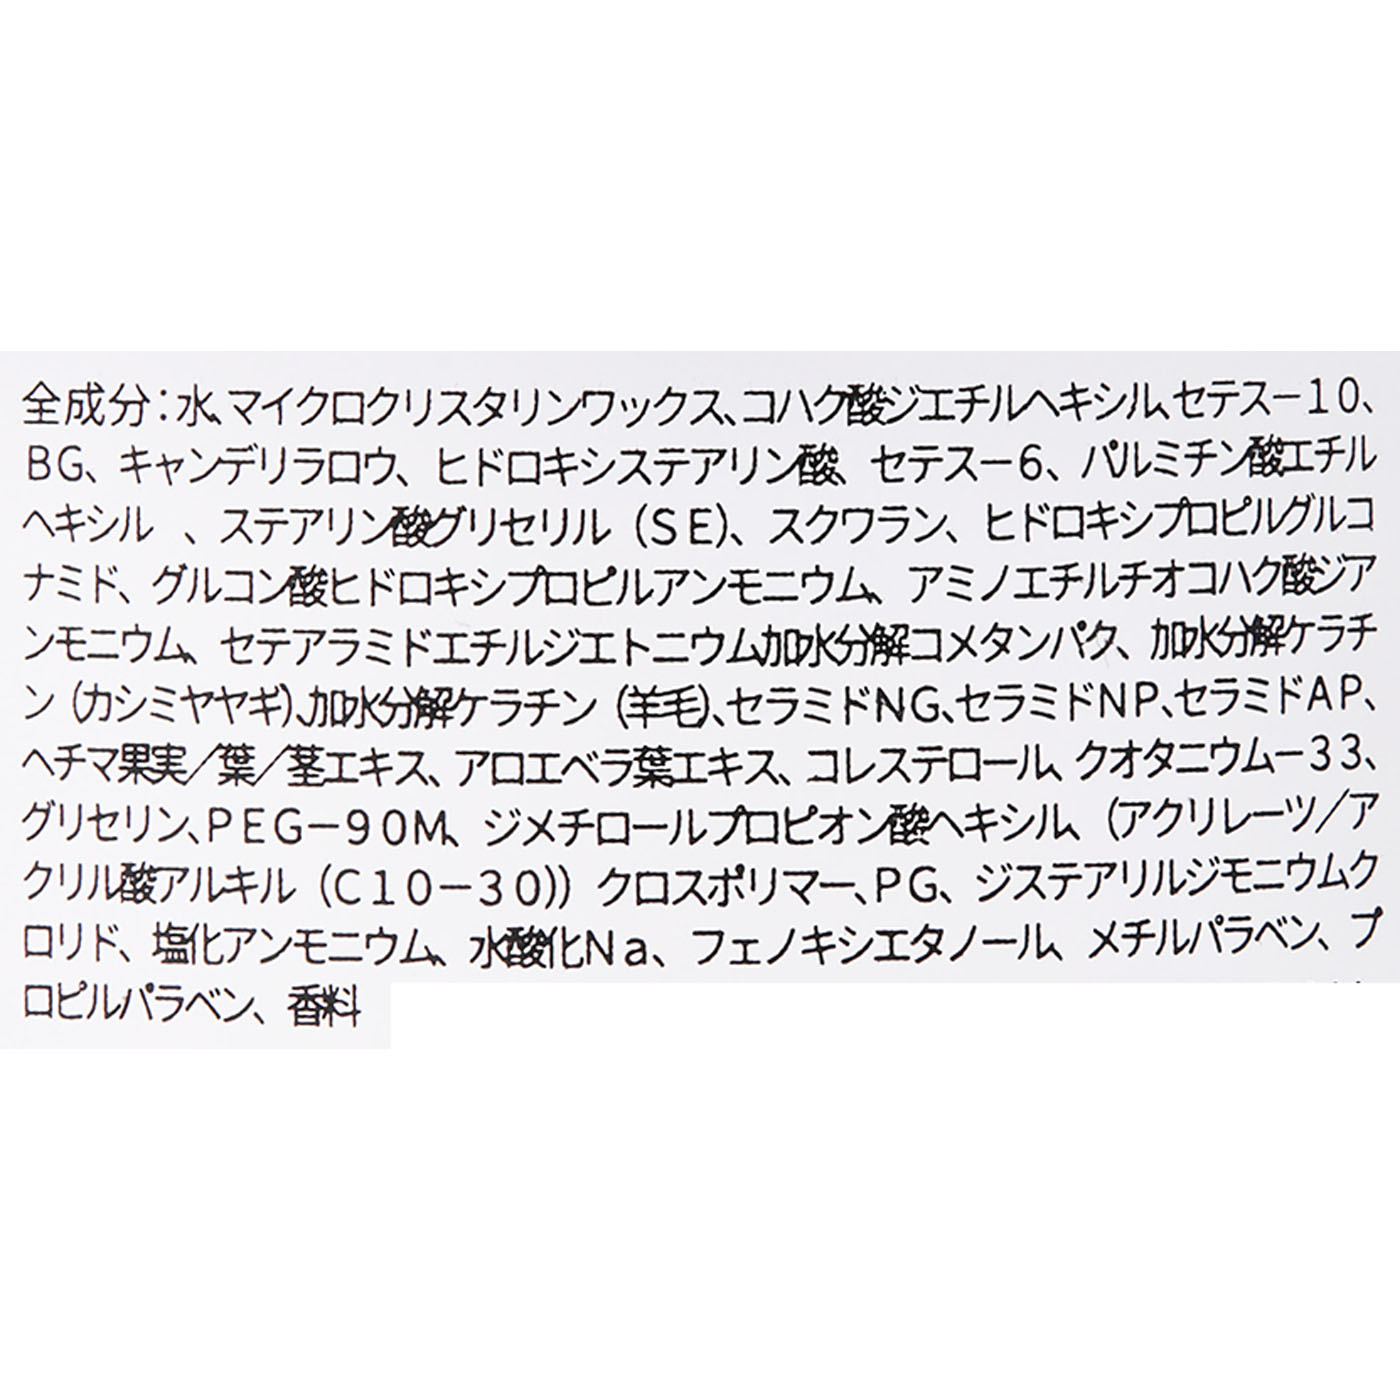 全成分：水、マイクロクリスタリンワックス、コハク酸ジエチルヘキシル、セテス－10、
BG、キャンデリラロウ、ヒドロキシステアリン酸、セテス－6、パルミチン酸エチル
ヘキシル 、ステアリン酸グリセリル（SE）、スクワラン、ヒドロキシプロピルグルコ
ナミド、グルコン酸ヒドロキシプロピルアンモニウム、アミノエチルチオコハク酸ジア
ンモニウム、セテアラミドエチルジエトニウム加水分解コメタンパク、加水分解ケラチ
ン（カシミヤヤギ）、加水分解ケラチン（羊毛）、セラミドNG、セラミドNP、セラミドAP、
ヘチマ果実／葉／茎エキス、アロエベラ葉エキス、コレステロール、クオタニウム－33、
グリセリン、PEG－90M、ジメチロールプロピオン酸ヘキシル、（アクリレーツ／ア
クリル酸アルキル（C10－30））クロスポリマー、PG、ジステアリルジモニウムク
ロリド、塩化アンモニウム、水酸化Na、フェノキシエタノール、メチルパラベン、プ
ロピルパラベン、香料